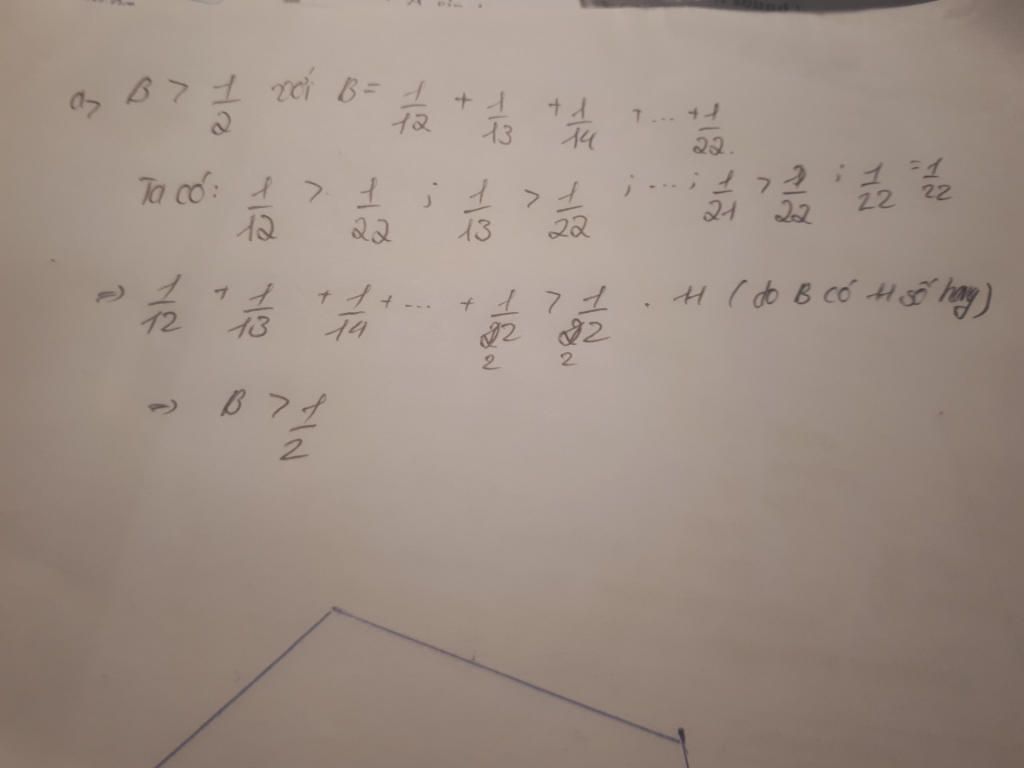 a, B > 1/2 với B = 1/12 + 1/13 + 1/14 + ... + 1/22.
Ta có: 1/12 > 1/22 ; 1/13 > 1/22 ; ... ; 1/21 > 1/22 ; 1/22 = 1/22
=> 1/12 + 1/13 + 1/14 + ... + 1/22 > 1/22 . 11 (do B có 11 số hạng)
=> B > 1/2